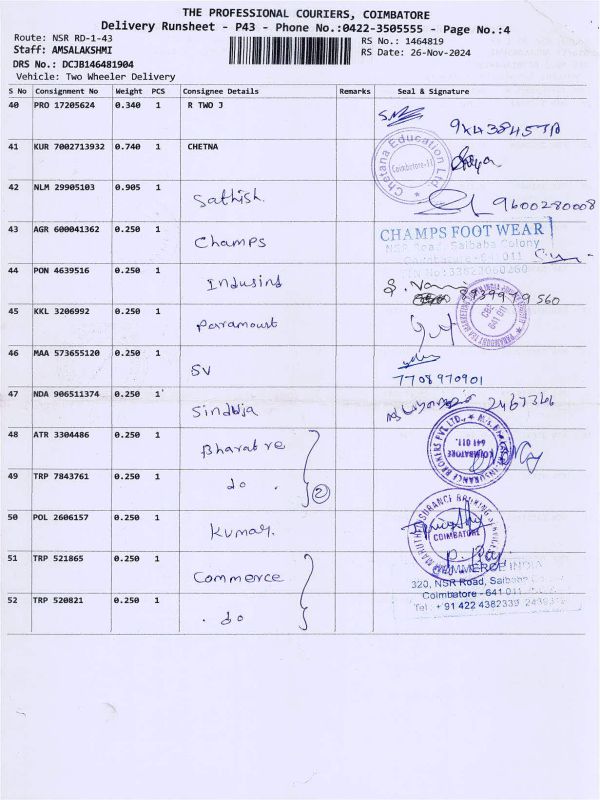 THE PROFESSIONAL COURIERS, COIMBATORE
Delivery Runsheet - P43 - Phone No.:0422-3505555 - Page No.:4
Route: NSR RD-1-43
RS No.: 1464819
Staff: AMSALAKSHMI
RS Date: 26-Nov-2024
DRS No.: DCJB146481904
Vehicle: Two Wheeler Delivery
S No Consignment No Weight PCS Consignee Details Remarks Seal & Signature
40 PRO 17205624 0.340 1 R TWO J
41 KUR 7002713932 0.740 1 CHETNA
Chetana Education Ltd. Coimbatore-11
42 NLM 29905103 0.905 1 Sathish. 9600280008
43 AGR 600041362 0.250 1 Champs
CHAMPS FOOT WEAR
NSR Road, Saibaba Colony
Coimbatore - 641 011
44 PON 4639516 0.250 1 Indusind
45 KKL 3206992 0.250 1 Paramount
641 011
46 MAA 573655120 0.250 1 SV
7708970901
47 NDA 906511374 0.250 1 Sindhja 2467366
48 ATR 3304486 0.250 1 Bharat re
INSURANCE BROKERS PVT. LTD., COIMBATORE 641 011.
49 TRP 7843761 0.250 1 do . 2
50 POL 2606157 0.250 1 Kumar.
INSURANCE BROKING COIMBATORE
51 TRP 521865 0.250 1 Commerce
COMMERCE INDIA
320, NSR Road, Saibaba
Coimbatore - 641 011
52 TRP 520821 0.250 1 . do
Tel : + 91 422 4382339